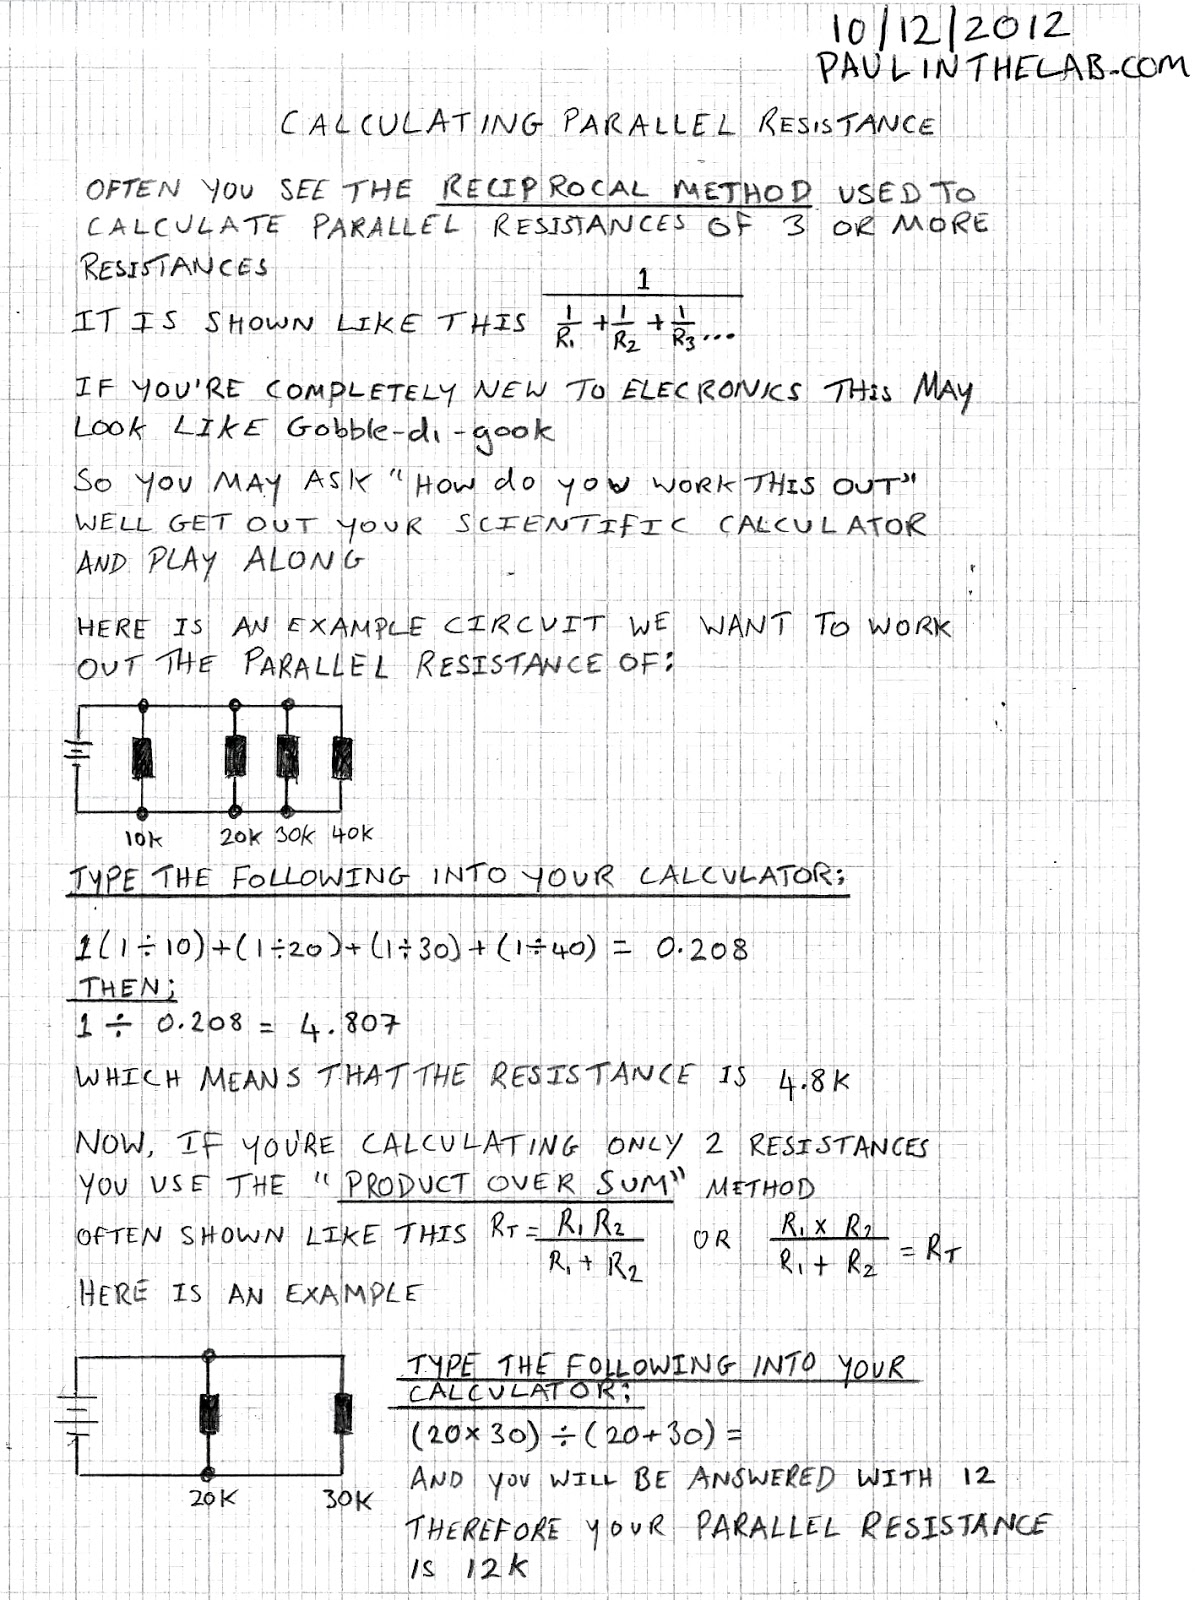 10/12/2012
PAULINTHELAB.COM
CALCULATING PARALLEL RESISTANCE
OFTEN YOU SEE THE RECIPROCAL METHOD USED TO
CALCULATE PARALLEL RESISTANCES OF 3 OR MORE
RESISTANCES
IT IS SHOWN LIKE THIS 1 / (1/R1 + 1/R2 + 1/R3...)
IF YOU'RE COMPLETELY NEW TO ELECRONICS THIS MAY
LOOK LIKE Gobble-di-gook
SO YOU MAY ASK "HOW do you WORK THIS OUT"
WELL GET OUT YOUR SCIENTIFIC CALCULATOR
AND PLAY ALONG
HERE IS AN EXAMPLE CIRCUIT WE WANT TO WORK
OUT THE PARALLEL RESISTANCE OF:
10K 20K 30K 40K
TYPE THE FOLLOWING INTO YOUR CALCULATOR;
1(1÷10)+(1÷20)+(1÷30)+(1÷40) = 0.208
THEN;
1 ÷ 0.208 = 4.807
WHICH MEANS THAT THE RESISTANCE IS 4.8K
NOW, IF YOU'RE CALCULATING ONLY 2 RESISTANCES
YOU USE THE "PRODUCT OVER SUM" METHOD
OFTEN SHOWN LIKE THIS RT = R1 R2 / R1 + R2 OR R1 x R2 / R1 + R2 = RT
HERE IS AN EXAMPLE
20K 30K
TYPE THE FOLLOWING INTO YOUR
CALCULATOR;
(20x30) ÷ (20+30) =
AND YOU WILL BE ANSWERED WITH 12
THEREFORE YOUR PARALLEL RESISTANCE
IS 12K